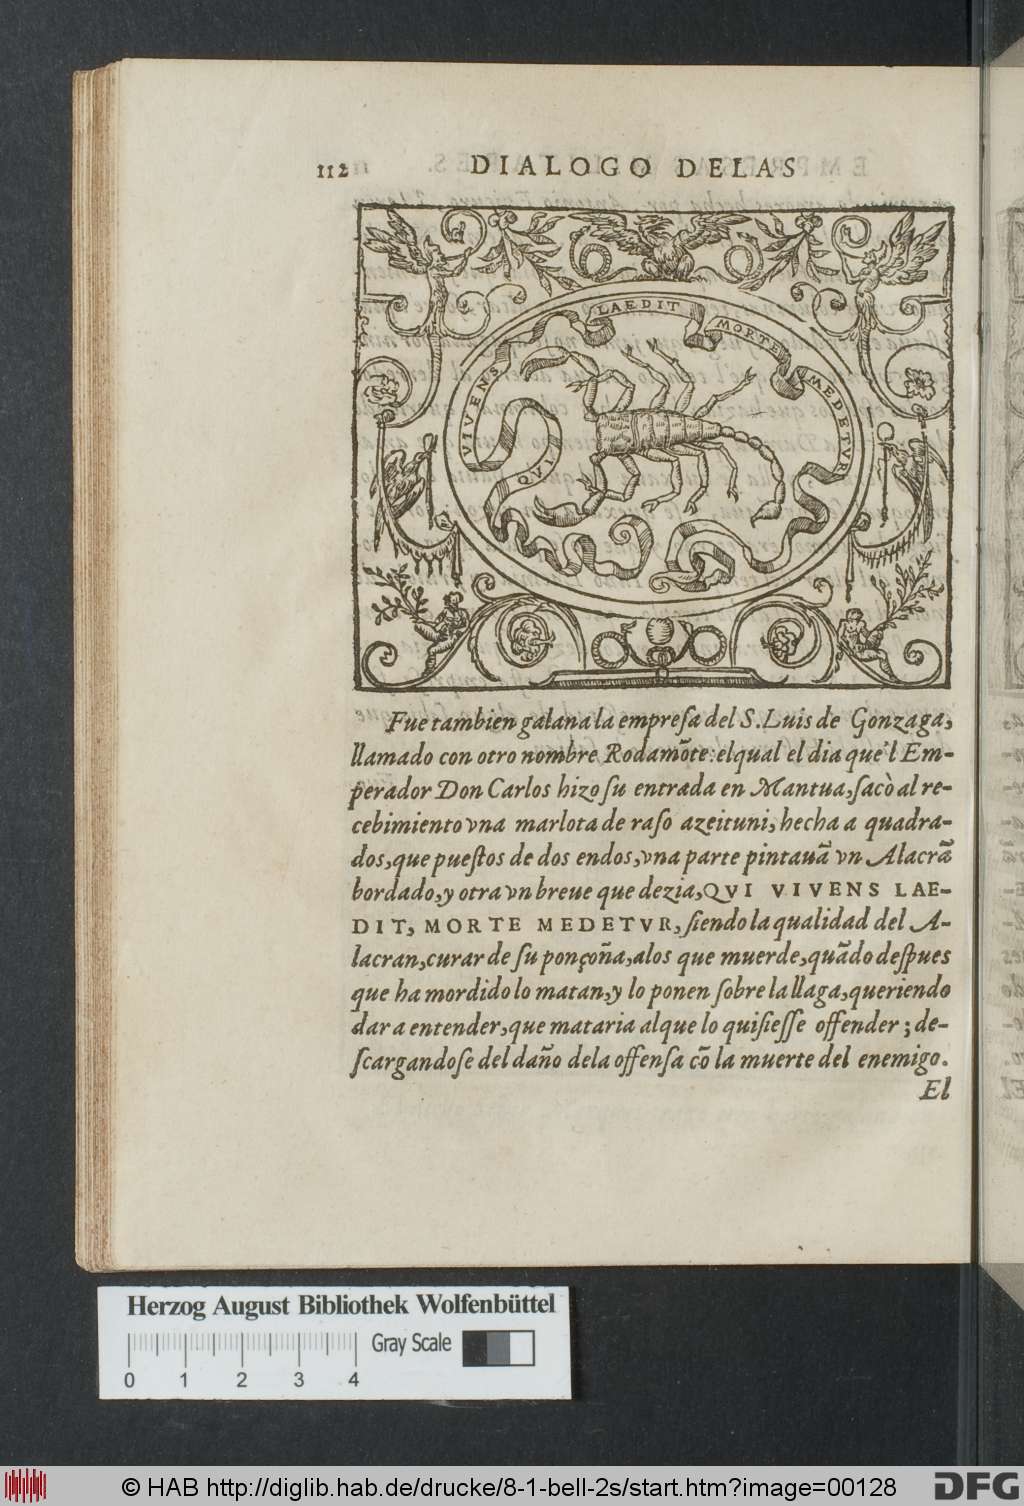 112 DIALOGO DELAS
QVI VIVENS LAEDIT MORTE MEDETVR
Fue tambien galana la empreſa del S. Luis de Gonzaga,
llamado con otro nombre Rodamõte: elqual el dia que'l Em-
perador Don Carlos hizo ſu entrada en Mantua, ſacò al re-
cebimiento vna marlota de raſo azeituni, hecha a quadra-
dos, que pueſtos de dos endos, vna parte pintauã vn Alacrã
bordado, y otra vn breue que dezia, QVI VIVENS LAE-
DIT, MORTE MEDETVR, ſiendo la qualidad del A-
lacran, curar de ſu ponçoña, alos que muerde, quãdo deſpues
que ha mordido lo matan, y lo ponen ſobre la llaga, queriendo
dar a entender, que mataria alque lo quiſieſſe offender; de-
ſcargandoſe del daño dela offenſa cõ la muerte del enemigo.
El
Herzog August Bibliothek Wolfenbüttel
Gray Scale
0 1 2 3 4
© HAB http://diglib.hab.de/drucke/8-1-bell-2s/start.htm?image=00128
DFG